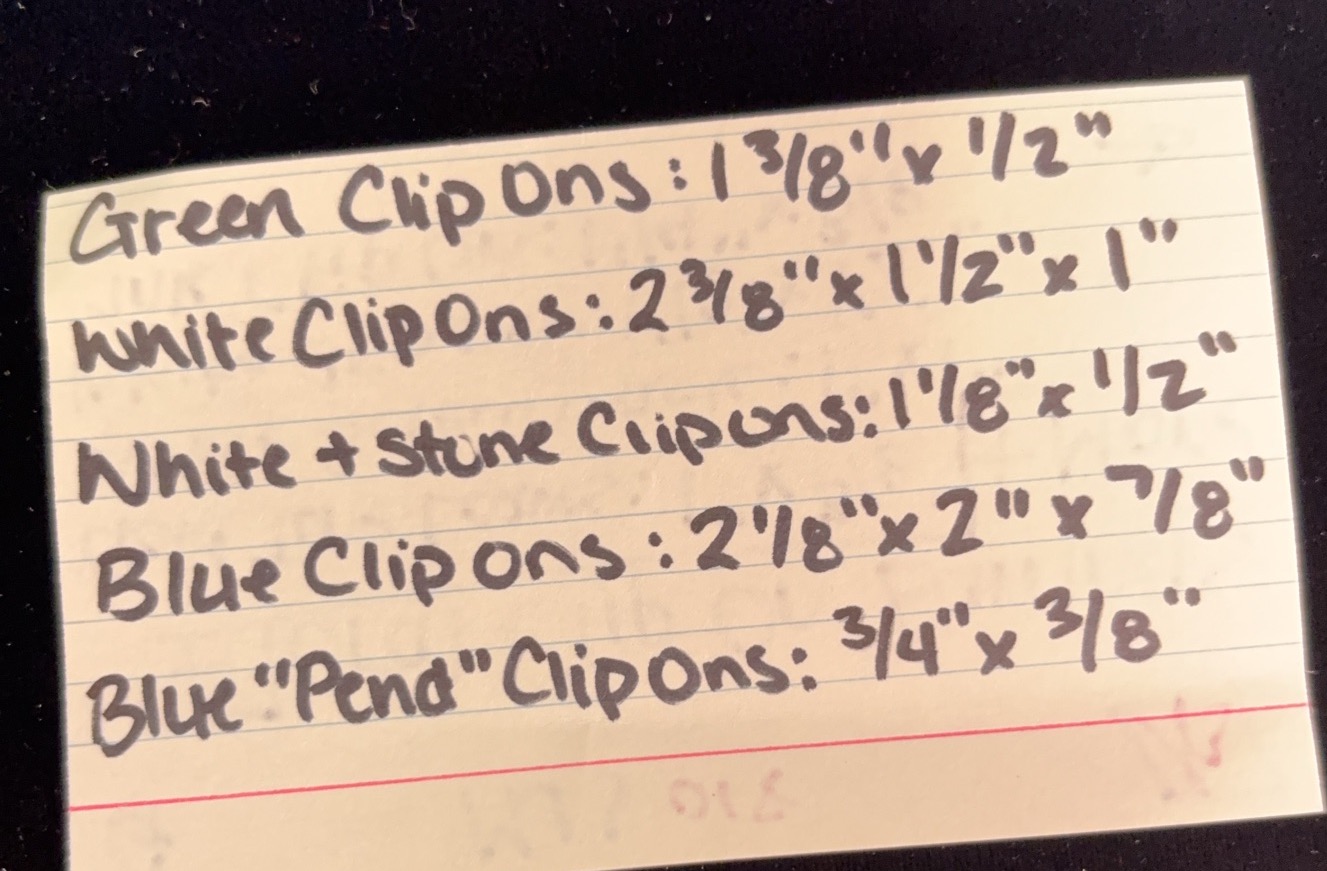 Green Clip Ons: 1 3/8" x 1/2"
White Clip Ons: 2 3/8" x 1 1/2" x 1"
White + Stone Clip ons: 1 1/8" x 1/2"
Blue Clip ons: 2 1/8" x 2" x 7/8"
Blue "Pend" Clip Ons: 3/4" x 3/8"